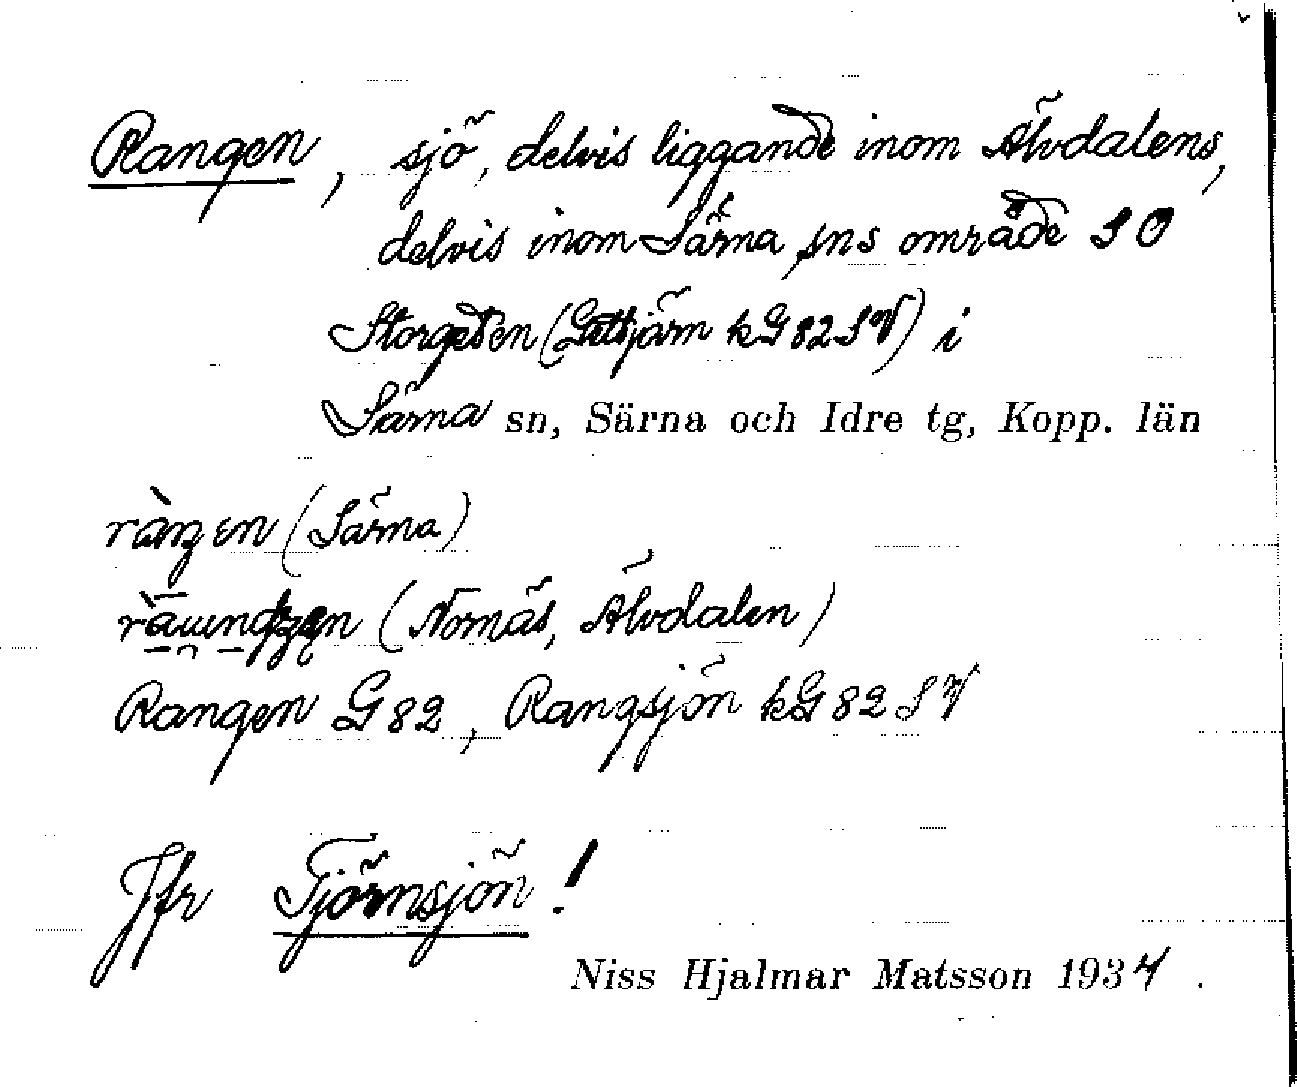 Rangen, sjö, delvis liggande inom Älvdalens,
delvis inom Särna sns område SO
Storgeten (Gettjärn kG82SV) i
Särna sn, Särna och Idre tg, Kopp. län
(Särna)
(Nornäs, Älvdalen)
Rangen G82, Rangsjön kG82SV
Jfr Tjörnsjön!
Niss Hjalmar Matsson 1934.